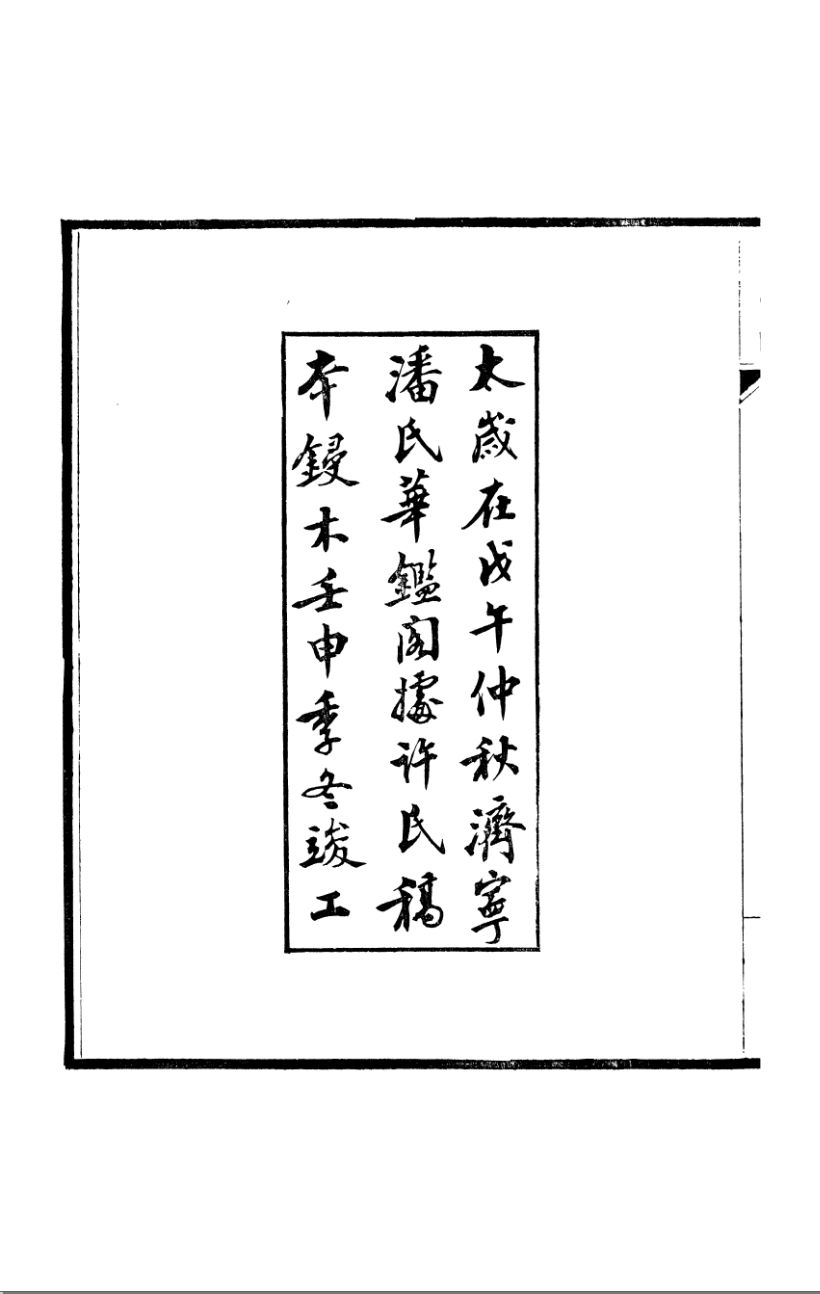 太歲在戊午仲秋濟寧
潘氏華鑑閣據許氏稿
本鋟木壬申季冬竣工